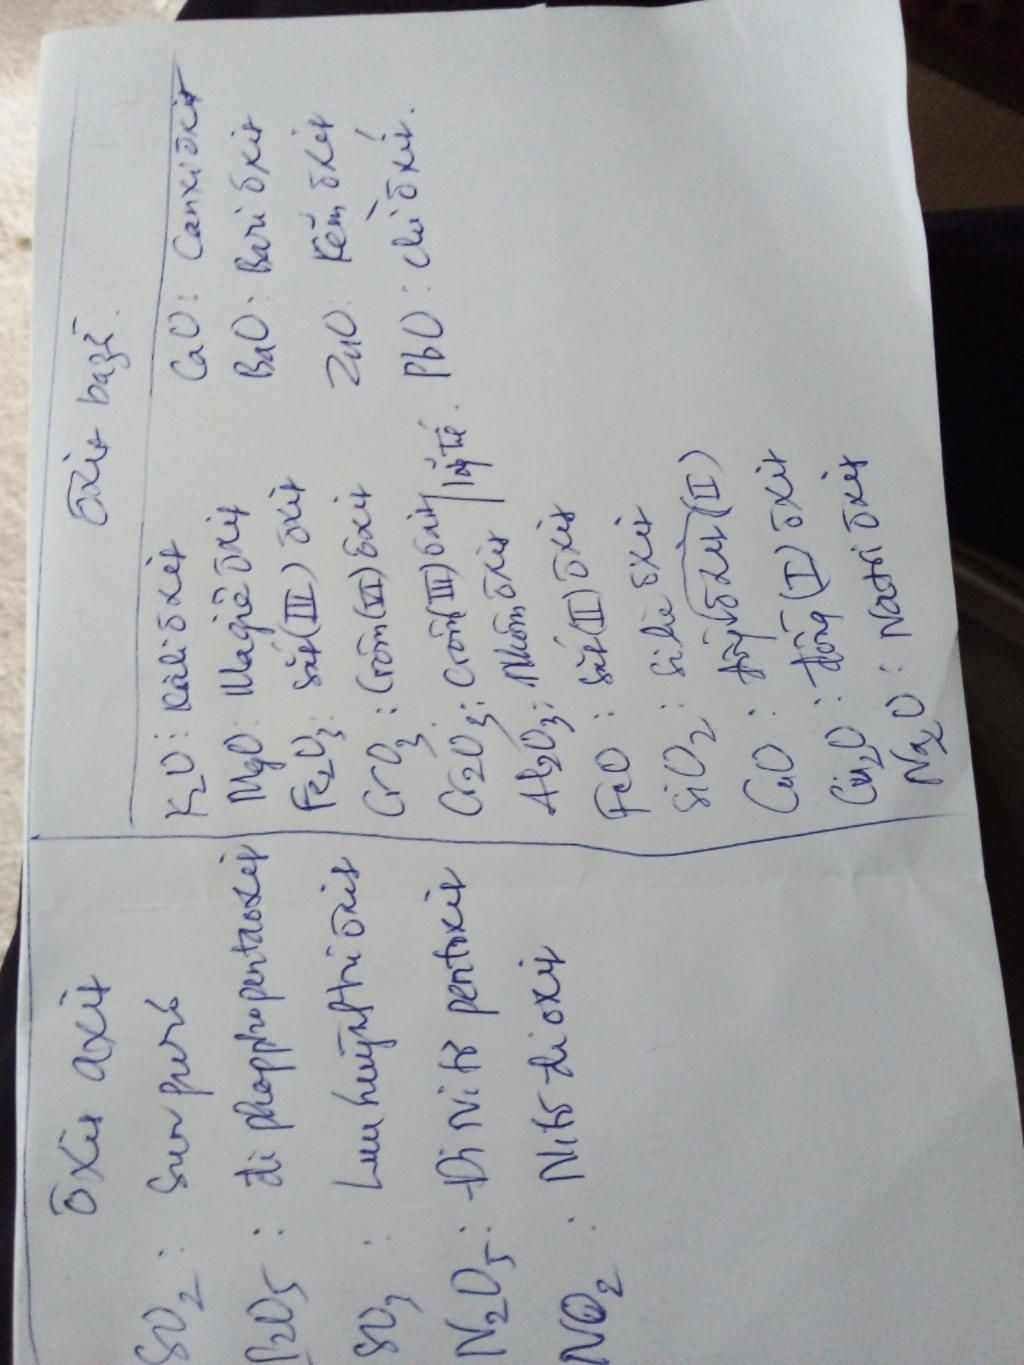 ôxit axit
SO2 : Sunfurơ
P2O5 : đi phốtpho pentaoxit
SO3 : Lưu huỳnh tri ôxit
N2O5 : Đi Nitơ pentoxit
NO2 : Nitơ đi oxit
ôxit bazơ.
K2O : Kali ôxit
MgO : Magiê ôxit
Fe2O3 : Sắt (III) ôxit
CrO3 : Crôm (VI) ôxit
Cr2O3 : Crôm (III) ôxit / lưỡng tính.
Al2O3 : Nhôm ôxit
FeO : Sắt (II) ôxit
SiO2 : Silic ôxit
CuO : đồng ôxit (II)
Cu2O : đồng (I) ôxit
Na2O : Natri ôxit
CaO : Canxi ôxit
BaO : Bari ôxit
ZnO : Kẽm ôxit
PbO : chì ôxit.